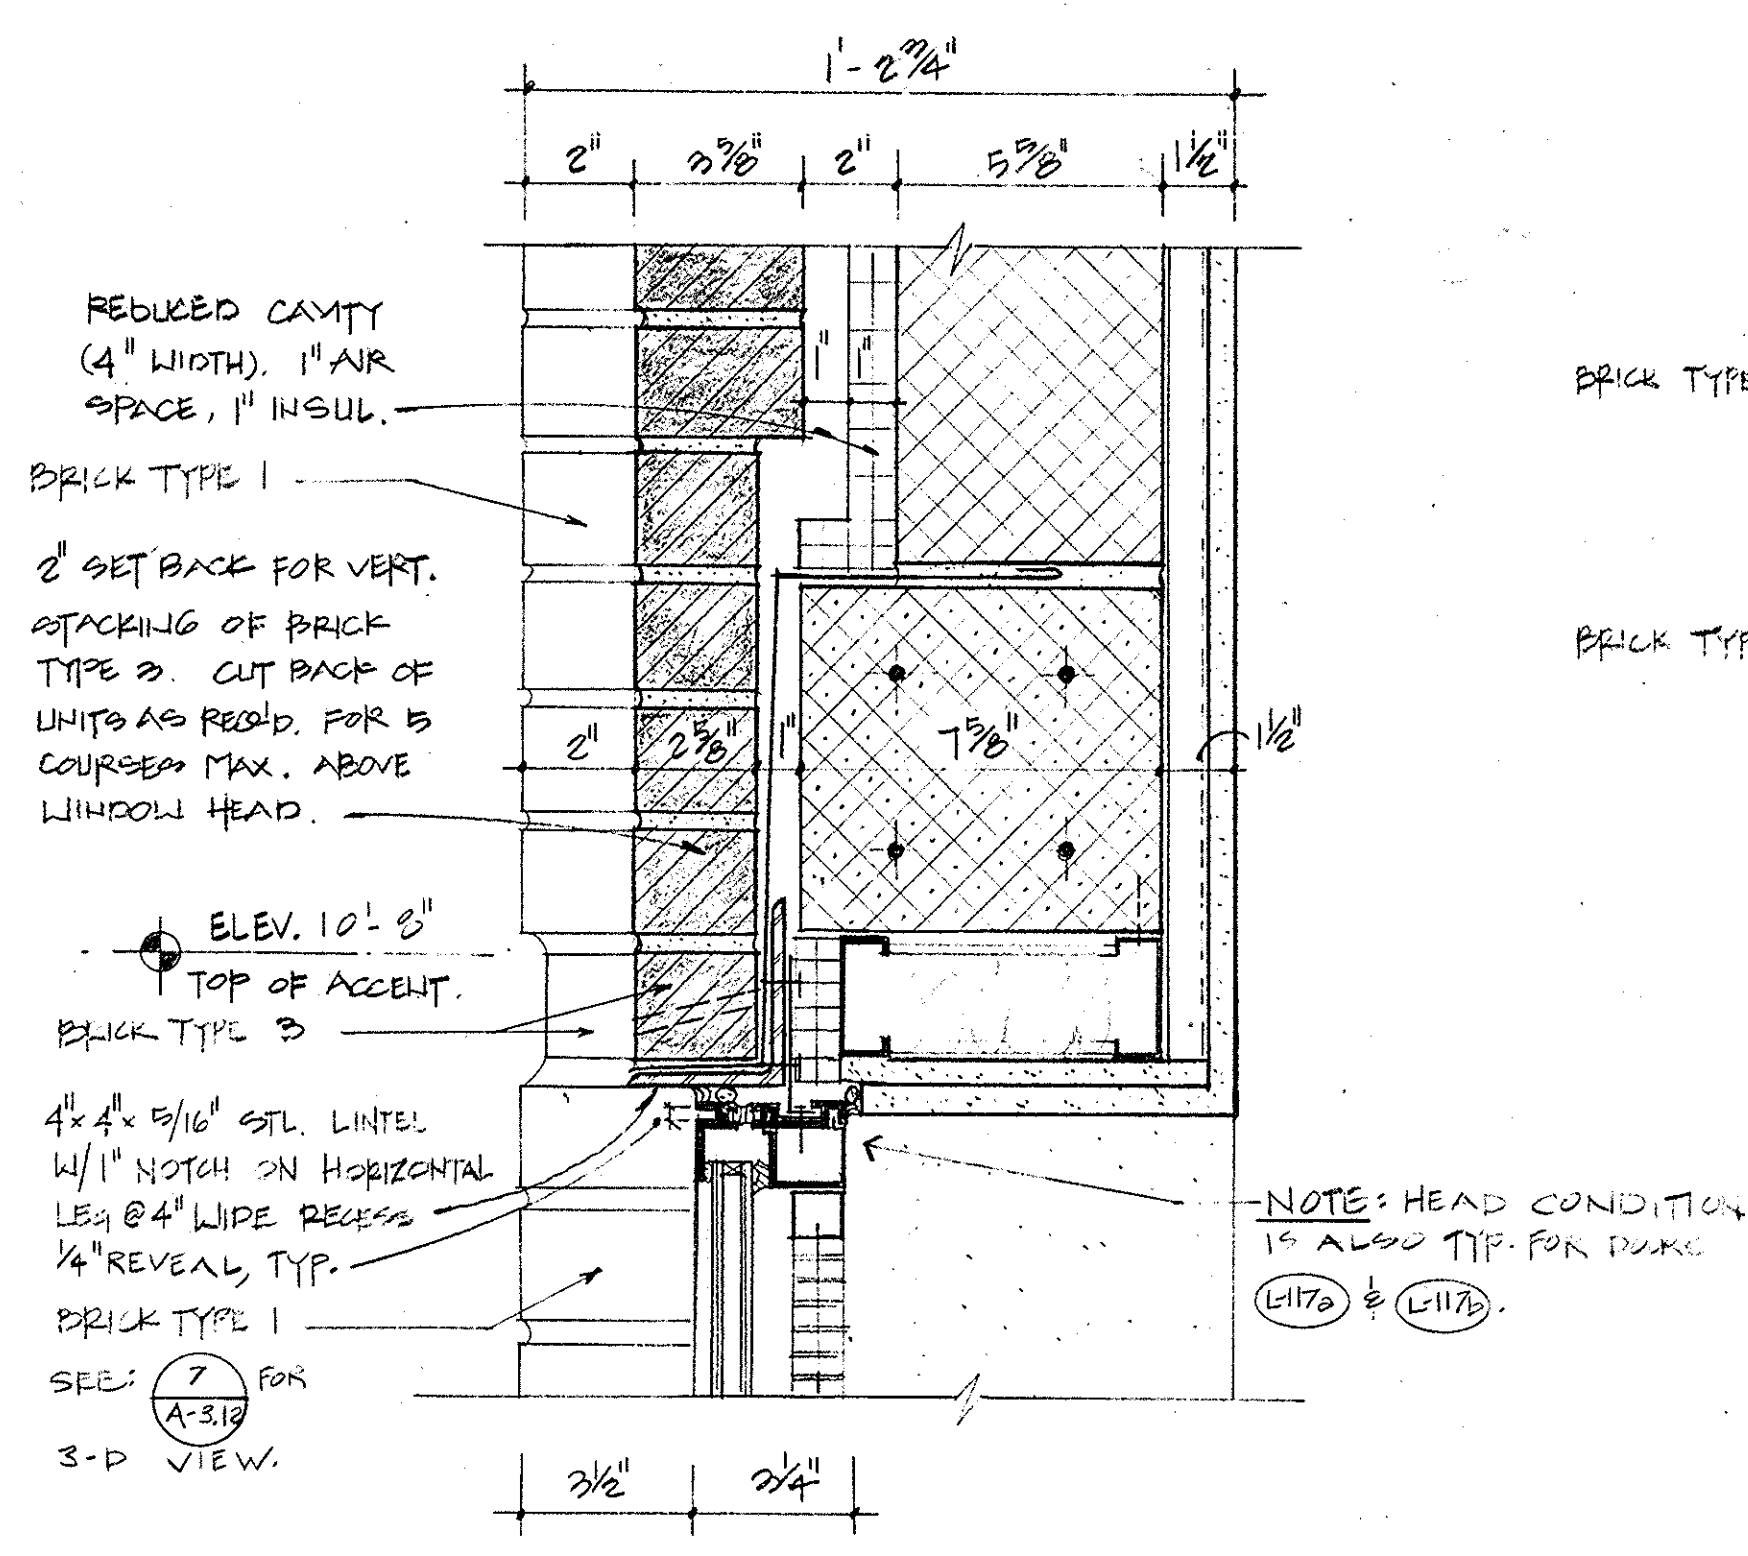 1'- 2 3/4"
2" 3 5/8" 2" 5 5/8" 1 1/2"
REDUCED CAVITY
(4" WIDTH). 1" AIR
SPACE, 1" INSUL.
1" 1"
BRICK TYPE 1
2" SET BACK FOR VERT.
STACKING OF BRICK
TYPE 3. CUT BACK OF
UNITS AS REQ'D. FOR 5
COURSES MAX. ABOVE
WINDOW HEAD.
2" 2 5/8" 1" 7 5/8" 1 1/2"
ELEV. 10'- 8"
TOP OF ACCENT.
BRICK TYPE 3
4"x 4"x 5/16" STL. LINTEL
W/ 1" NOTCH ON HORIZONTAL
LEG @ 4" WIDE RECESS
1/4" REVEAL, TYP.
BRICK TYPE 1
SEE: 7 FOR
A-3.12
3-D VIEW.
3 1/2" 3 1/4"
NOTE: HEAD CONDITION
IS ALSO TYP. FOR DOORS
L-117a & L-117b.
BRICK TYPE
BRICK TYP